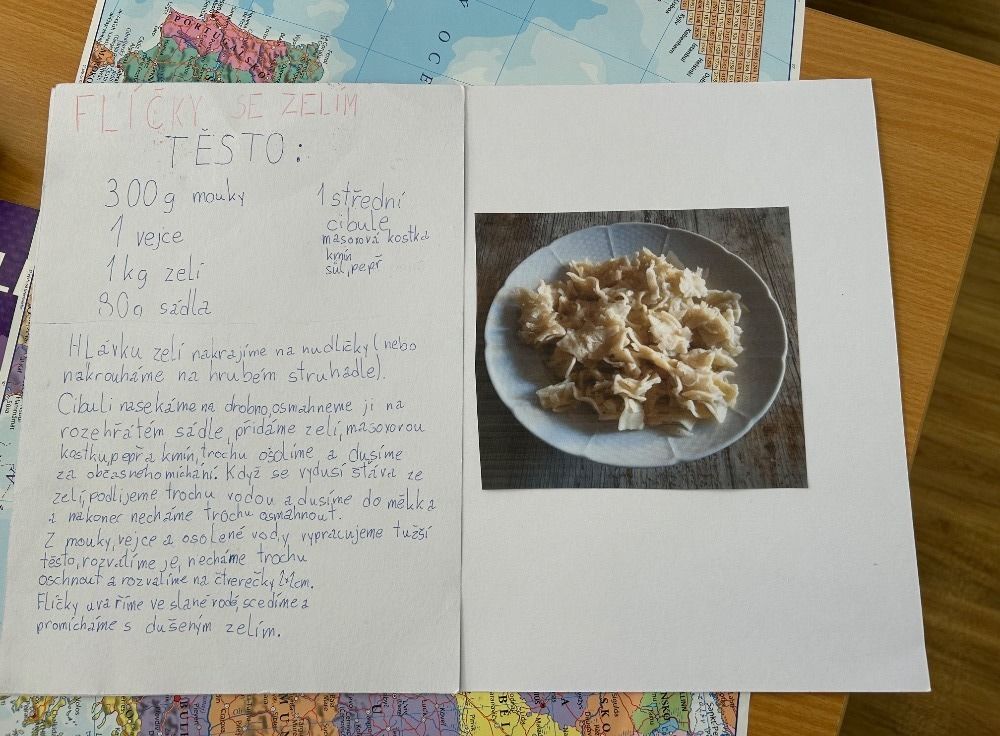 PORTUGALSKO
OCE
FLÍČKY SE ZELÍM
TĚSTO:
300g mouky
1 vejce
1kg zelí
80g sádla
1 střední
cibule
masoxová kostka
kmín
sůl, pepř
HLávku zelí nakrájíme na nudličky (nebo
nakrouháme na hrubém struhadle).
Cibuli nasekáme na drobno, osmahneme ji na
rozehřátém sádle, přidáme zelí, masoxovou
kostku, pepř a kmín, trochu osolíme a dusíme
za občasného míchání. Když se vydusí šťáva ze
zelí, podlijeme trochu vodou a dusíme do měkka
a nakonec necháme trochu osmahnout.
Z mouky, vejce a osolené vody vypracujeme tužší
těsto, rozválíme je, necháme trochu
oschnout a rozválíme na čtverečky 1x1cm.
Flíčky uvaříme ve slané vodě, scedíme a
promícháme s dušeným zelím.